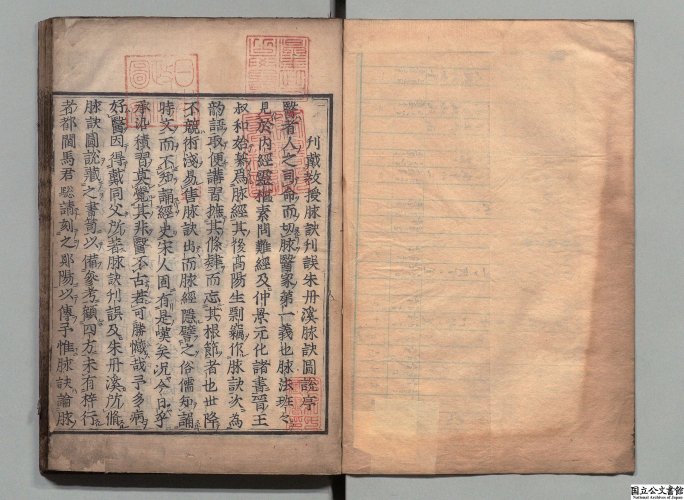 刊戴教授脉訣刊誤朱丹溪脉訣圖說序
醫者人之司命而切脉醫家第一義也脉法班々
見於內經靈樞素問難經及仲景元化諸書晉王
叔和始纂爲脉經其後高陽生剽竊作脉訣次爲
韵語取便講習撫其條肄而忘其根節者也世降
不兢術淺易售脉訣出而脉經隱譬之俗儒知誦
時文而不知誦經史宋人固有是嘆矣况今日乎
承沿積習莫覺其非醫不古若可勝慨哉予多病
好醫因得戴同父所著脉訣刊誤及朱丹溪所脩
脉訣圖說藏之書笥以備參考顧四方未有梓行
者都閫馬君聡請刻之鄖陽以傳予惟脉訣論脉
国立公文書館
National Archives of Japan